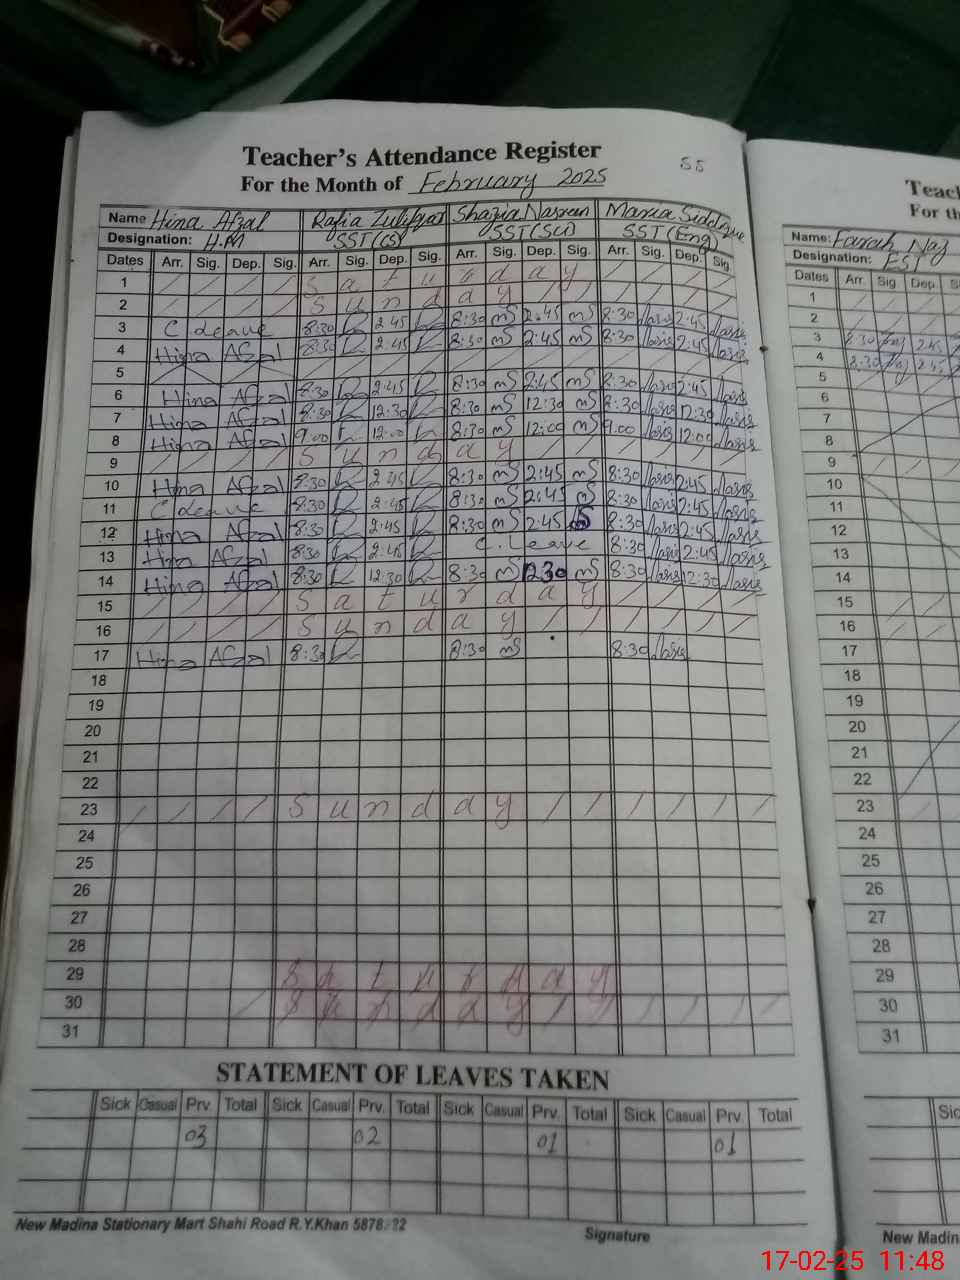 Teacher's Attendance Register
For the Month of February 2025
55
Name Hina Afzal Rafia Zulifqar Shazia Nasreen Maria Siddique
Designation: H.M SST(CS) SST(Sci) SST(Eng)
Dates Arr. Sig. Dep. Sig. Arr. Sig. Dep. Sig. Arr. Sig. Dep. Sig. Arr. Sig. Dep. Sig.
1 Saturday
2 Sunday
3 C Leave 8:30 2:45 8:30 mS 2:45 mS 8:30 2:45
4 Hina Afzal 8:30 2:45 8:30 mS 2:45 mS 8:30 2:45
5
6 Hina Afzal 8:30 2:45 8:30 mS 2:45 mS 8:30 2:45
7 Hina Afzal 8:30 12:30 8:30 mS 12:30 mS 8:30 12:30
8 Hina Afzal 9:00 12:00 8:30 mS 12:00 mS 9:00 12:00
9 Sunday
10 Hina Afzal 8:30 2:45 8:30 mS 2:45 mS 8:30 2:45
11 C Leave 8:30 2:45 8:30 mS 2:45 mS 8:30 2:45
12 Hina Afzal 8:30 2:45 8:30 mS 2:45 8:30 2:45
13 Hina Afzal 8:30 2:45 C. Leave 8:30 2:45
14 Hina Afzal 8:30 12:30 8:30 mS 1230 mS 8:30 12:30
15 Saturday
16 Sunday
17 Hina Afzal 8:30 8:30 mS 8:30
18
19
20
21
22
23 Sunday
24
25
26
27
28
29 Saturday
30 Sunday
31
STATEMENT OF LEAVES TAKEN
Sick Casual Prv. Total Sick Casual Prv. Total Sick Casual Prv. Total Sick Casual Prv. Total
03 02 01 01
New Madina Stationary Mart Shahi Road R.Y.Khan
Signature
Teacl
For th
Name: Farah Naz
Designation: EST
Dates Arr. Sig. Dep. S
1
2
3 8:30 2:45
4 8:30 2:45
5
6
7
8
9
10
11
12
13
14
15
16
17
18
19
20
21
22
23
24
25
26
27
28
29
30
31
Sic
New Madin
17-02-25 11:48